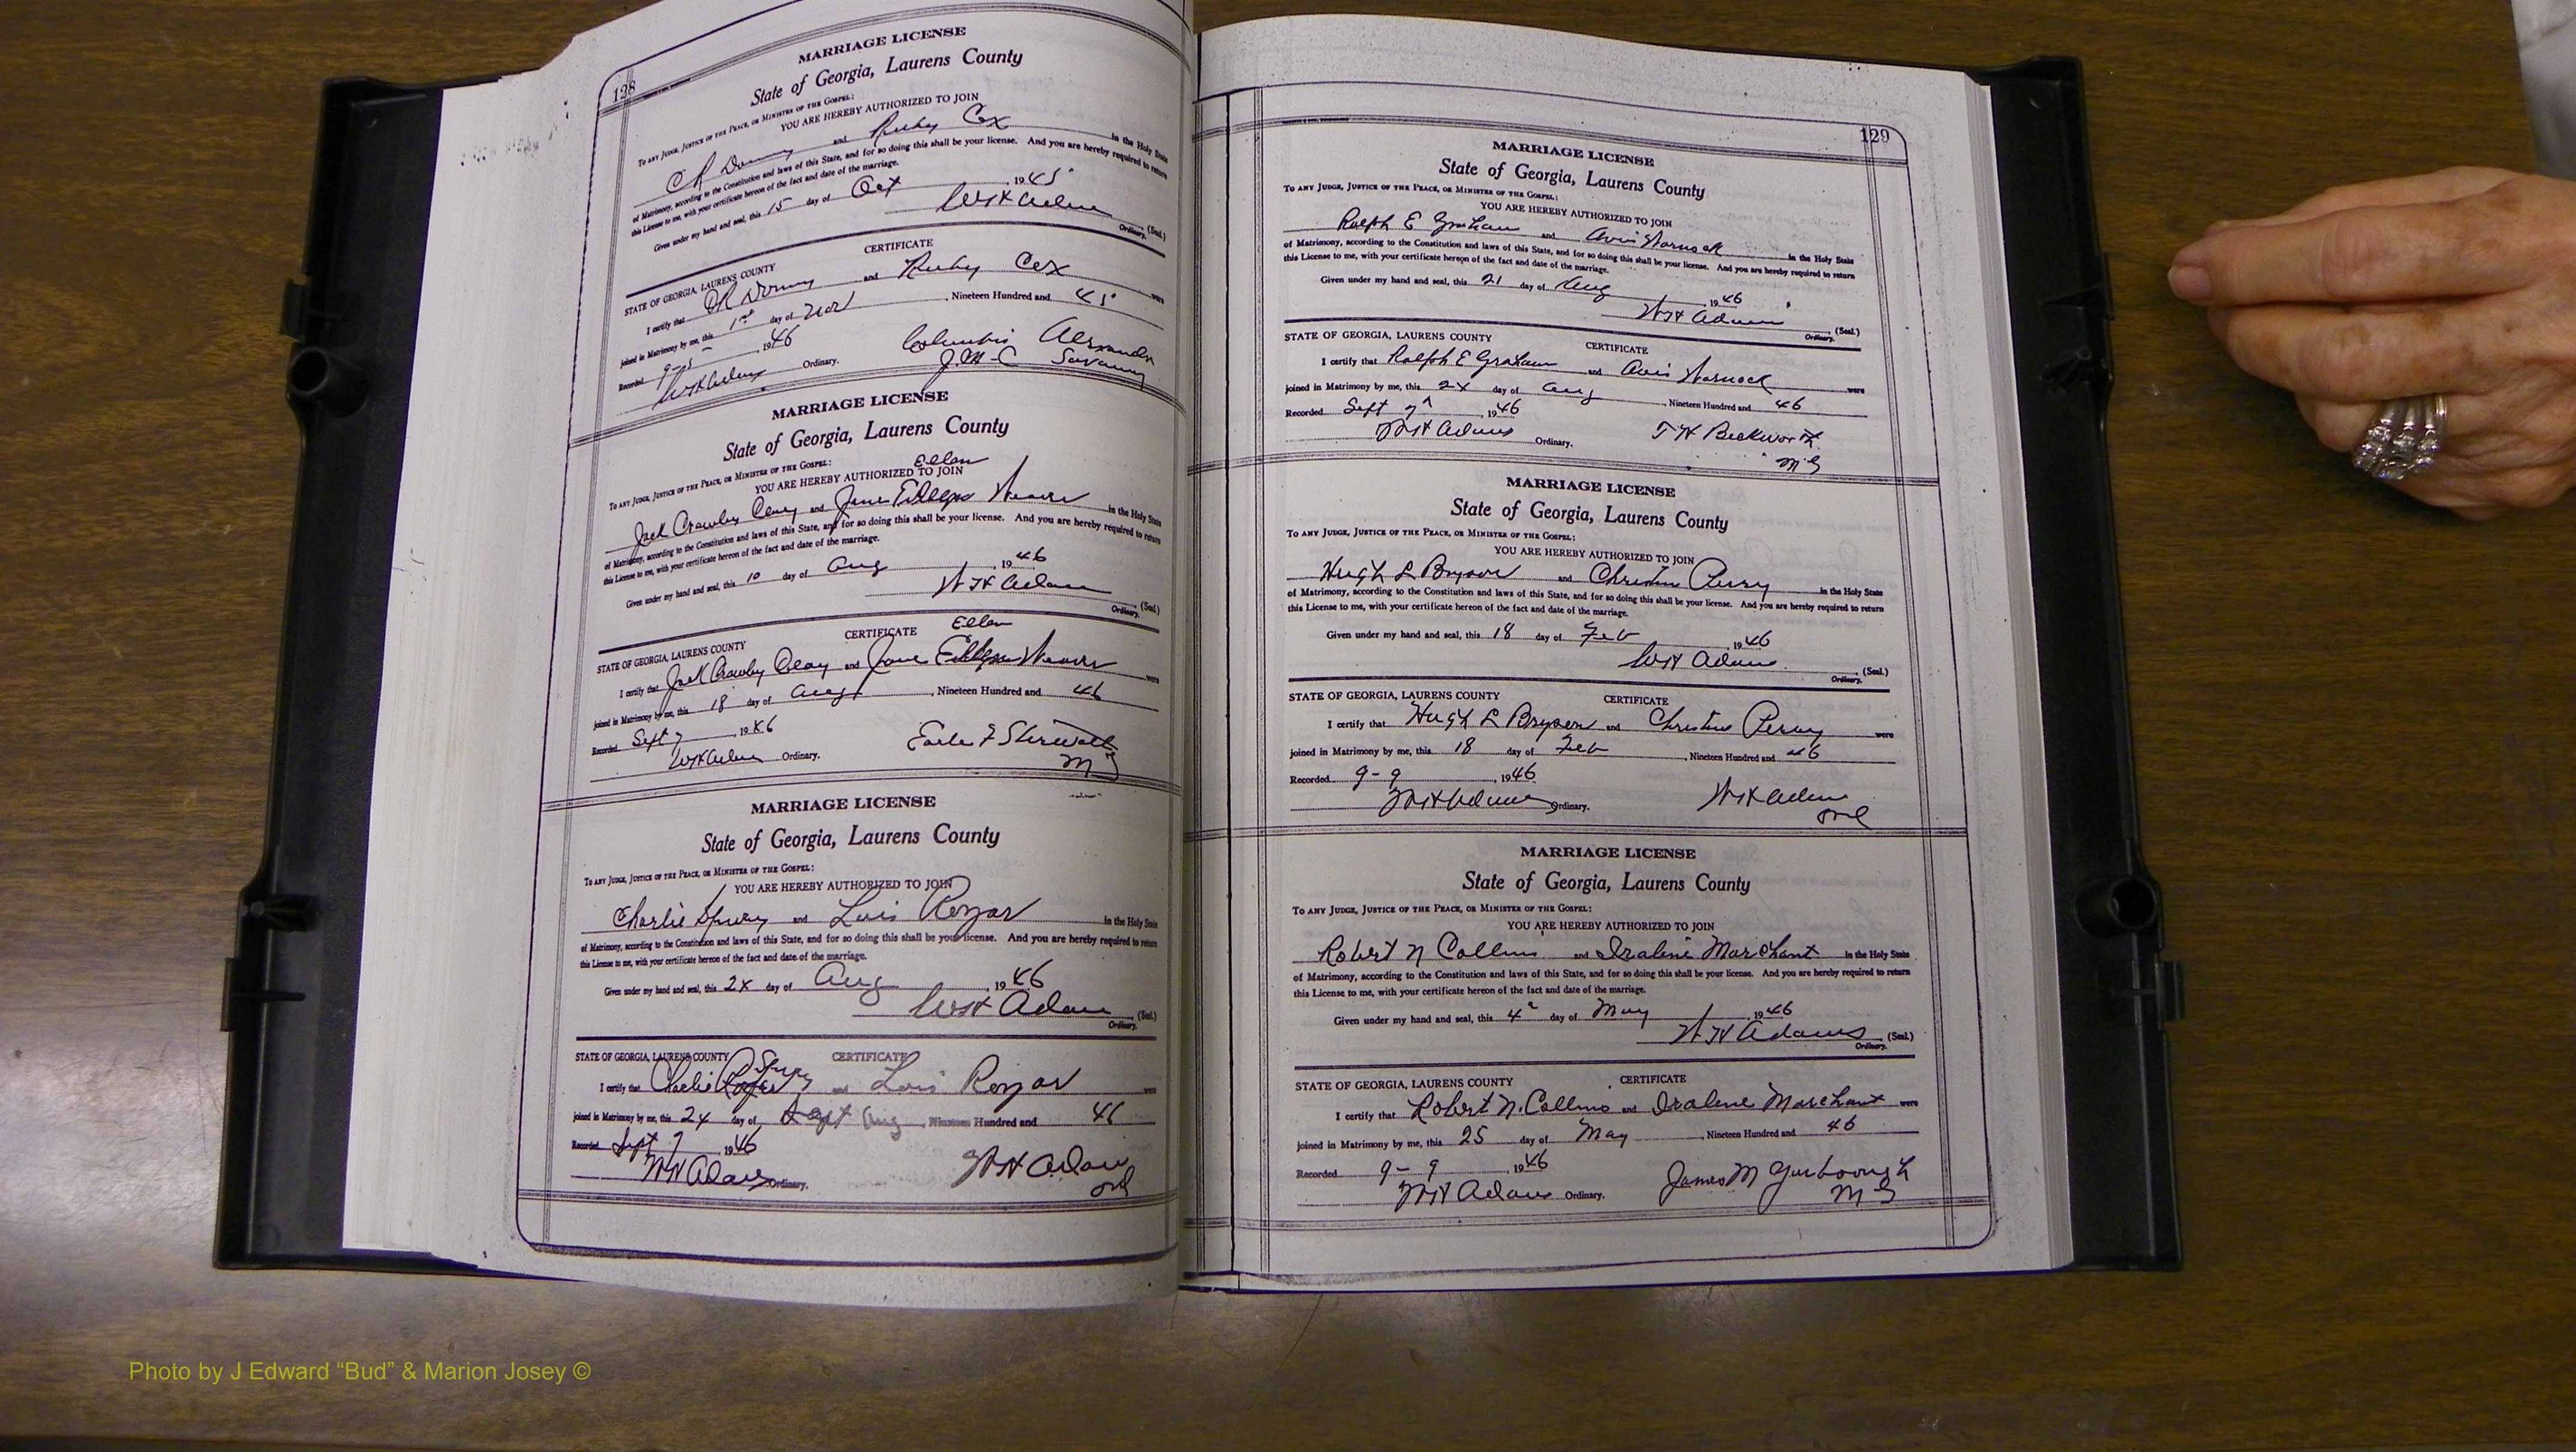 128
MARRIAGE LICENSE
State of Georgia, Laurens County
To any Judge, Justice of the Peace, or Minister of the Gospel:
YOU ARE HEREBY AUTHORIZED TO JOIN
C R and Ruby Cox in the Holy State
of Matrimony, according to the Constitution and laws of this State, and for so doing this shall be your license. And you are hereby required to return
this License to me, with your certificate hereon of the fact and date of the marriage.
Given under my hand and seal, this 15 day of Oct, 1945
W H Adams (Seal.)
Ordinary.
CERTIFICATE
STATE OF GEORGIA, LAURENS COUNTY
I certify that C R and Ruby Cox were
joined in Matrimony by me, this 1st day of Nov, Nineteen Hundred and 45
Recorded 9-5, 1946
W H Adams Ordinary.
Alexander
MARRIAGE LICENSE
State of Georgia, Laurens County
To any Judge, Justice of the Peace, or Minister of the Gospel:
Ellen
YOU ARE HEREBY AUTHORIZED TO JOIN
Jack Crawley and Jane Weaver in the Holy State
of Matrimony, according to the Constitution and laws of this State, and for so doing this shall be your license. And you are hereby required to return
this License to me, with your certificate hereon of the fact and date of the marriage.
Given under my hand and seal, this 10 day of Aug, 1946
W H Adams (Seal.)
Ordinary.
CERTIFICATE Ellen
STATE OF GEORGIA, LAURENS COUNTY
I certify that Jack Crawley and Jane Weaver were
joined in Matrimony by me, this 18 day of Aug, Nineteen Hundred and 46
Recorded Sept 7, 1946
W H Adams Ordinary.
Earle F
M G
MARRIAGE LICENSE
State of Georgia, Laurens County
To any Judge, Justice of the Peace, or Minister of the Gospel:
YOU ARE HEREBY AUTHORIZED TO JOIN
Charlie Spivey and Lois Rozar in the Holy State
of Matrimony, according to the Constitution and laws of this State, and for so doing this shall be your license. And you are hereby required to return
this License to me, with your certificate hereon of the fact and date of the marriage.
Given under my hand and seal, this 24 day of Aug, 1946
W H Adams (Seal.)
Ordinary.
STATE OF GEORGIA, LAURENS COUNTY CERTIFICATE
I certify that Charlie Spivey and Lois Rozar were
joined in Matrimony by me, this 24 day of Sept Aug, Nineteen Hundred and 46
Recorded Sept 7, 1946
W H Adams Ordinary.
W H Adams
Ord
129
MARRIAGE LICENSE
State of Georgia, Laurens County
To any Judge, Justice of the Peace, or Minister of the Gospel:
YOU ARE HEREBY AUTHORIZED TO JOIN
Ralph E Graham and Avis Warnock in the Holy State
of Matrimony, according to the Constitution and laws of this State, and for so doing this shall be your license. And you are hereby required to return
this License to me, with your certificate hereon of the fact and date of the marriage.
Given under my hand and seal, this 21 day of Aug, 1946
W H Adams (Seal.)
Ordinary.
STATE OF GEORGIA, LAURENS COUNTY CERTIFICATE
I certify that Ralph E Graham and Avis Warnock were
joined in Matrimony by me, this 24 day of Aug, Nineteen Hundred and 46
Recorded Sept 7, 1946
W H Adams Ordinary.
T H Beckworth
M G
MARRIAGE LICENSE
State of Georgia, Laurens County
To any Judge, Justice of the Peace, or Minister of the Gospel:
YOU ARE HEREBY AUTHORIZED TO JOIN
Hugh L Bryson and Christine Perry in the Holy State
of Matrimony, according to the Constitution and laws of this State, and for so doing this shall be your license. And you are hereby required to return
this License to me, with your certificate hereon of the fact and date of the marriage.
Given under my hand and seal, this 18 day of Feb, 1946
W H Adams (Seal.)
Ordinary.
STATE OF GEORGIA, LAURENS COUNTY CERTIFICATE
I certify that Hugh L Bryson and Christine Perry were
joined in Matrimony by me, this 18 day of Feb, Nineteen Hundred and 46
Recorded 9-9, 1946
W H Adams Ordinary.
W H Adams
Ord
MARRIAGE LICENSE
State of Georgia, Laurens County
To any Judge, Justice of the Peace, or Minister of the Gospel:
YOU ARE HEREBY AUTHORIZED TO JOIN
Robert N Collins and Iralene Marchant in the Holy State
of Matrimony, according to the Constitution and laws of this State, and for so doing this shall be your license. And you are hereby required to return
this License to me, with your certificate hereon of the fact and date of the marriage.
Given under my hand and seal, this 4 day of May, 1946
W H Adams (Seal.)
Ordinary.
STATE OF GEORGIA, LAURENS COUNTY CERTIFICATE
I certify that Robert N. Collins and Iralene Marchant were
joined in Matrimony by me, this 25 day of May, Nineteen Hundred and 46
Recorded 9-9, 1946
W H Adams Ordinary.
James M Yarborough
M G
Photo by J Edward “Bud” & Marion Josey ©